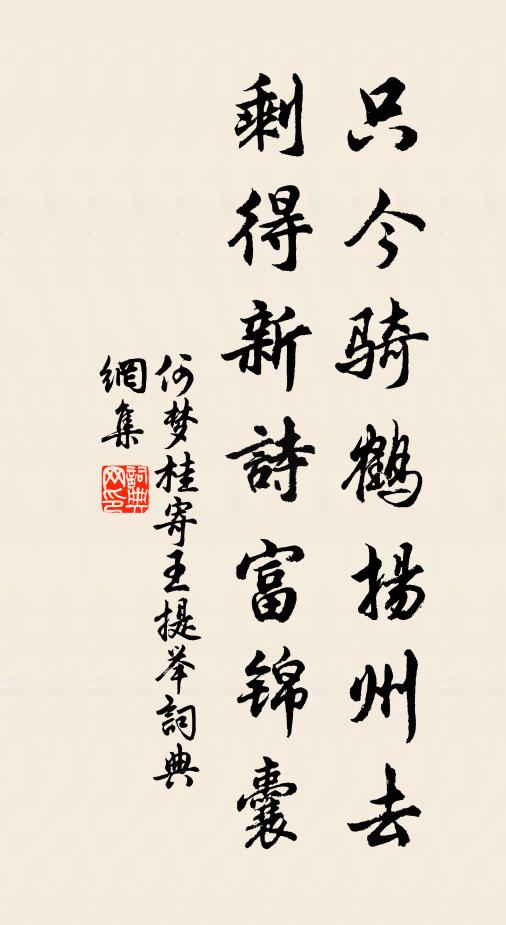 只今骑鹤揚州去
剩得新詩富锦囊
何梦桂寄王提举詞典
網集
詞典
网印